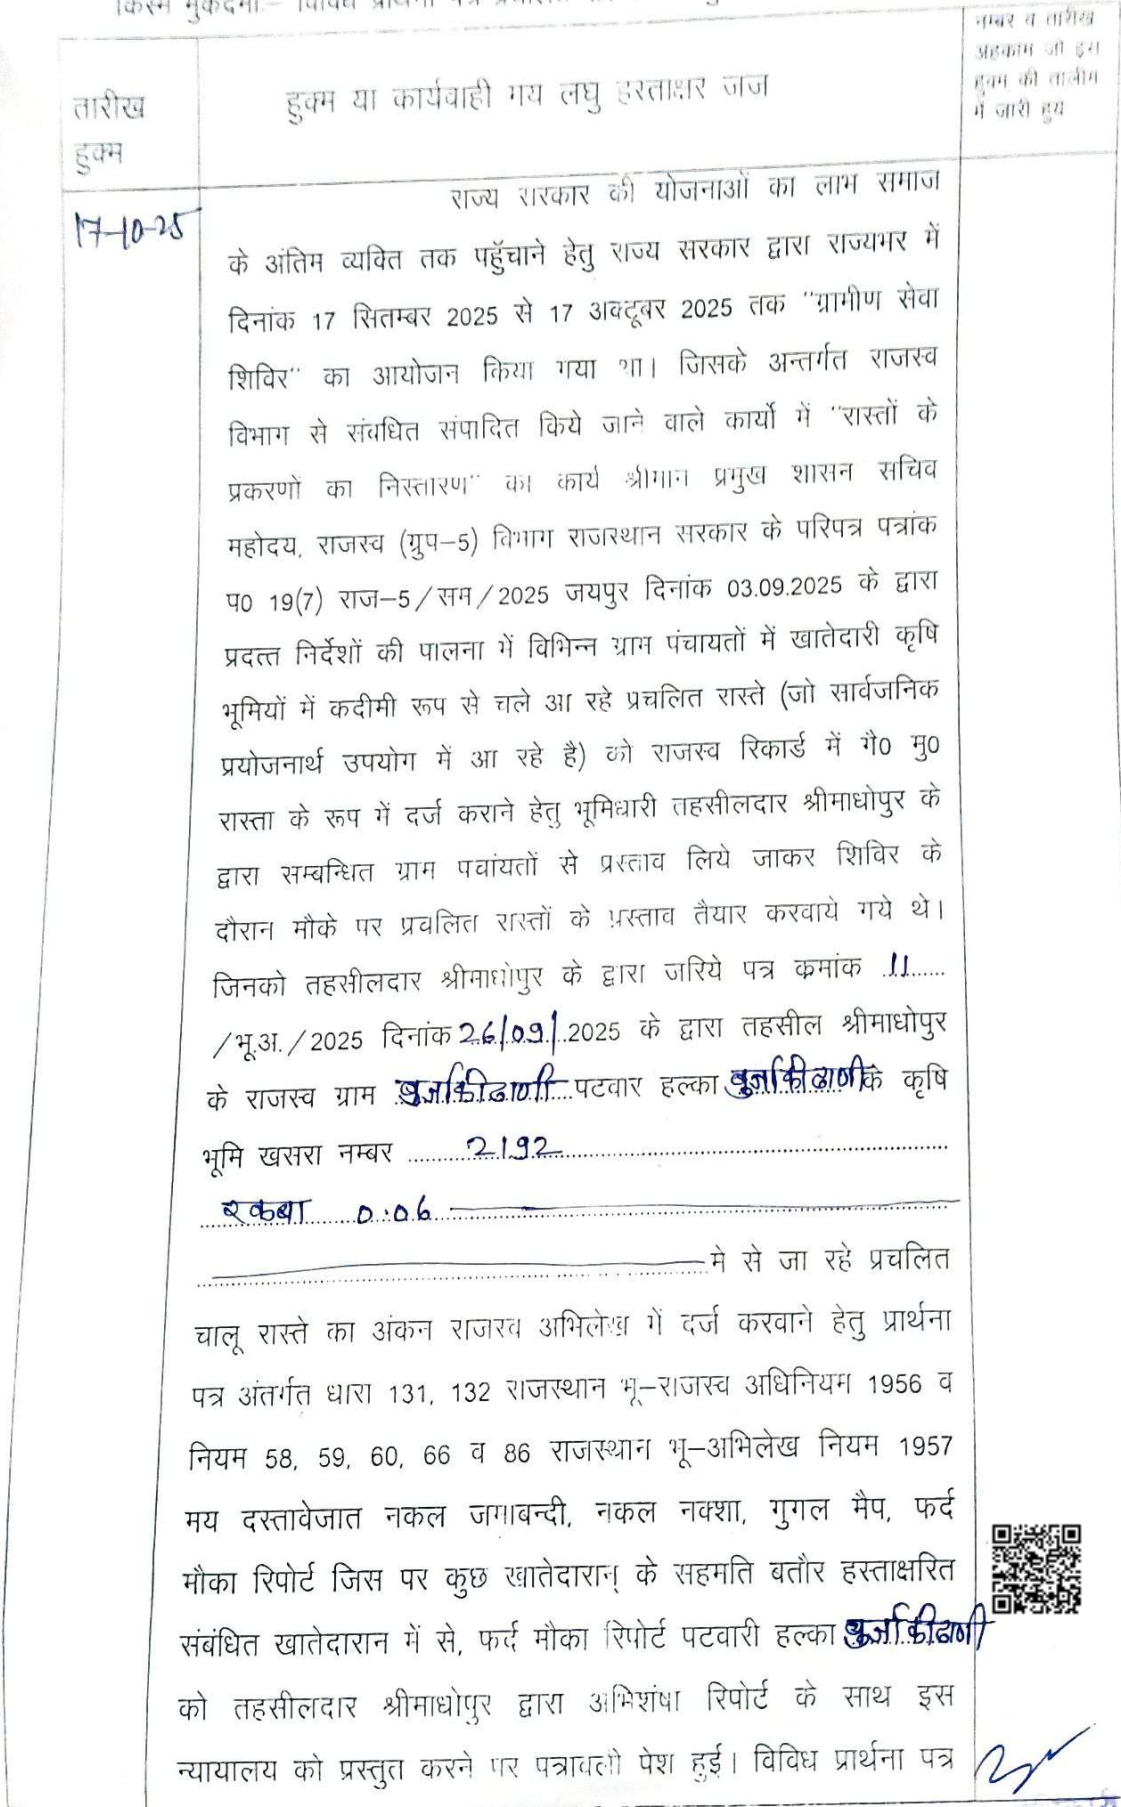 किस्म मुकदमा:– विविध प्रार्थना पत्र
तारीख
हुक्म
हुक्म या कार्यवाही मय लघु हस्ताक्षर जज
नम्बर व तारीख
अहकाम जो इस
हुक्म की तालीम
में जारी हुये
17-10-25
राज्य सरकार की योजनाओं का लाभ समाज
के अंतिम व्यक्ति तक पहुँचाने हेतु राज्य सरकार द्वारा राज्यभर में
दिनांक 17 सितम्बर 2025 से 17 अक्टूबर 2025 तक "ग्रामीण सेवा
शिविर" का आयोजन किया गया था। जिसके अन्तर्गत राजस्व
विभाग से संबधित संपादित किये जाने वाले कार्यो में "रास्तों के
प्रकरणों का निस्तारण" का कार्य श्रीमान प्रमुख शासन सचिव
महोदय, राजस्व (ग्रुप–5) विभाग राजस्थान सरकार के परिपत्र पत्रांक
प0 19(7) राज–5/सम/2025 जयपुर दिनांक 03.09.2025 के द्वारा
प्रदत्त निर्देशों की पालना में विभिन्न ग्राम पंचायतों में खातेदारी कृषि
भूमियों में कदीमी रूप से चले आ रहे प्रचलित रास्ते (जो सार्वजनिक
प्रयोजनार्थ उपयोग में आ रहे है) को राजस्व रिकार्ड में गै0 मु0
रास्ता के रूप में दर्ज कराने हेतु भूमिधारी तहसीलदार श्रीमाधोपुर के
द्वारा सम्बन्धित ग्राम पचांयतों से प्रस्ताव लिये जाकर शिविर के
दौरान मौके पर प्रचलित रास्तों के प्रस्ताव तैयार करवाये गये थे।
जिनको तहसीलदार श्रीमाधोपुर के द्वारा जरिये पत्र क्रमांक 11
/भू.अ./2025 दिनांक 26/09/.2025 के द्वारा तहसील श्रीमाधोपुर
के राजस्व ग्राम बुर्जा की ढाणी पटवार हल्का बुर्जा की ढाणी के कृषि
भूमि खसरा नम्बर 2192
रकबा 0.06
मे से जा रहे प्रचलित
चालू रास्ते का अंकन राजस्व अभिलेख में दर्ज करवाने हेतु प्रार्थना
पत्र अंतर्गत धारा 131, 132 राजस्थान भू–राजस्व अधिनियम 1956 व
नियम 58, 59, 60, 66 व 86 राजस्थान भू–अभिलेख नियम 1957
मय दस्तावेजात नकल जमाबन्दी, नकल नक्शा, गुगल मैप, फर्द
मौका रिपोर्ट जिस पर कुछ खातेदारान् के सहमति बतौर हस्ताक्षरित
संबंधित खातेदारान में से, फर्द मौका रिपोर्ट पटवारी हल्का बुर्जा की ढाणी
को तहसीलदार श्रीमाधोपुर द्वारा अभिशंषा रिपोर्ट के साथ इस
न्यायालय को प्रस्तुत करने पर पत्रावली पेश हुई। विविध प्रार्थना पत्र